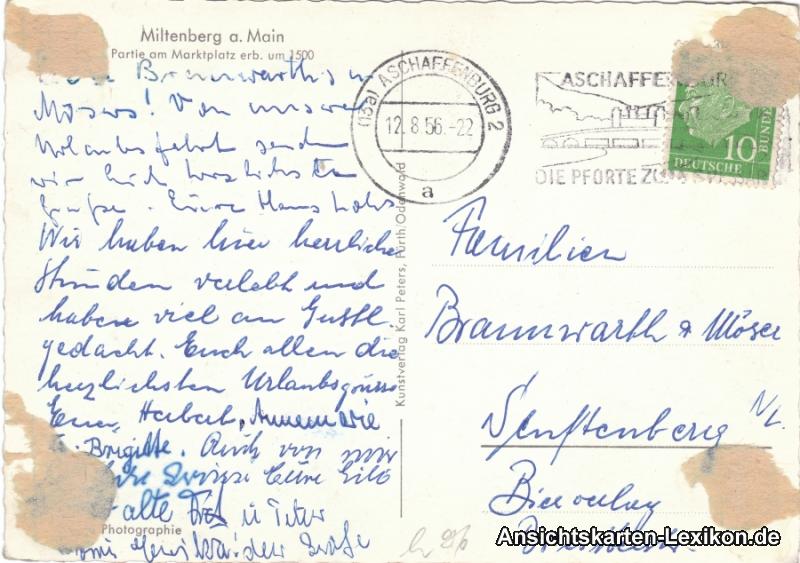 Miltenberg a. Main
Partie am Marktplatz erb. um 1500
Braunwarth's u.
Mösers! Von unserer
Urlaubsfahrt senden
wir Euch herzlichste
Grüße. Eure Hans
Wir haben hier herrliche
Stunden verlebt und
haben viel an Gustl.
gedacht. Euch allen die
herzlichsten Urlaubsgrüsse
Euer, Herbert, Annemarie
Brigitte. Auch von mir
Grüsse Eure
alte u Peter
Photographie
Kunstverlag Karl Peters, Fürth/Odenwald
(13a) ASCHAFFENBURG 2
12.8.56.-22
a
ASCHAFFENBUR
DIE PFORTE ZUM
10
DEUTSCHE
BUNDE
Familien
Braunwarth & Möser
Senftenberg N/L.
Ansichtskarten-Lexikon.de